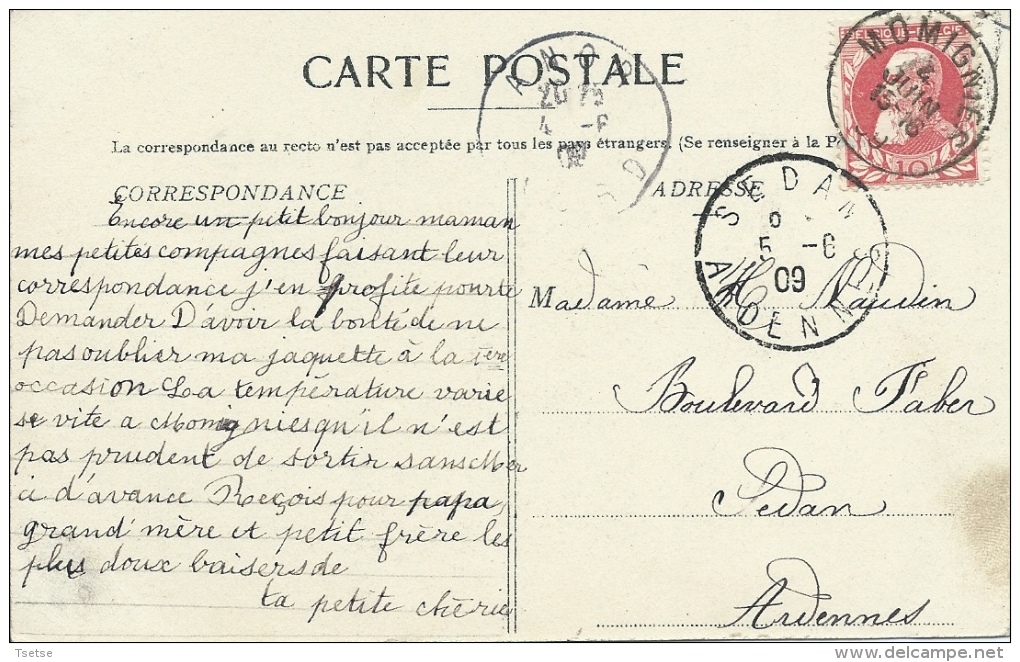 CARTE POSTALE
La correspondance au recto n'est pas acceptée par tous les pays étrangers. (Se renseigner à la P
CORRESPONDANCE
Encore un petit bonjour maman
mes petites compagnes faisant leur
correspondance j'en profite pour te
Demander D'avoir la bonté de ne
pas oublier ma jaquette à la 1ere
occasion La température varie
si vite a Momignies qu'il n'est
pas prudent de sortir sans Mer
ci d'avance Reçois pour papa,
grand'mère et petit frère les
plus doux baisers de
ta petite chérie
ADRESSE
Madame H. Naudin
Boulevard Faber
Sedan
Ardennes
MOMIGNIES
JUIN
10
ANOR
4 -6
09
SEDAN
5 -6
09
ARDENNES
Tsetse
delcampe.net